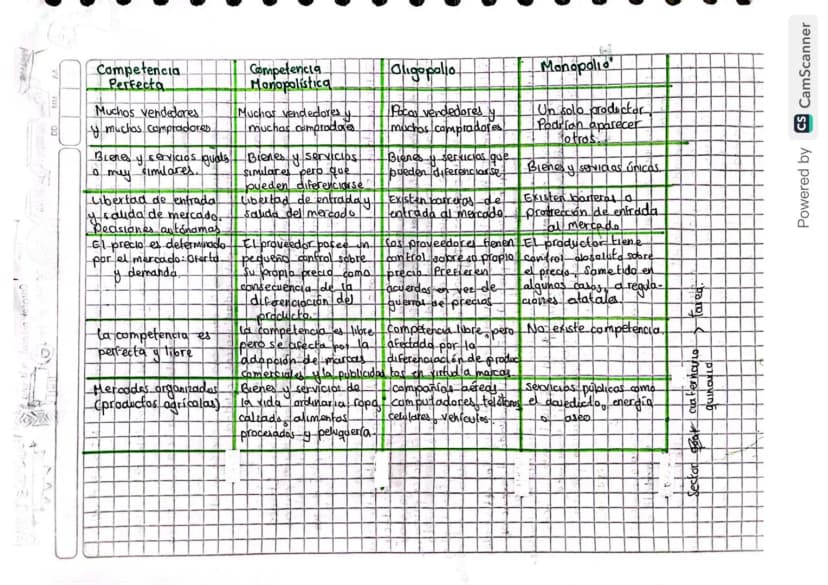 Competencia
Perfecta
Competencia
Monopolística
Oligopolio
Monopolio
Muchos vendedores
y muchos compradores
Muchos vendedores y
muchos compradores
Pocos vendedores y
muchos compradores
Un solo productor,
Podrían aparecer
otros.
Bienes y servicios iguals
o muy similares.
Bienes y servicios
similares pero que
pueden diferenciarse
Bienes y servicios que
pueden diferenciarse
Bienes y servicios únicos.
Libertad de entrada
y salida de mercado,
Decisiones autónomas
Libertad de entrada y
salida del mercado
Existen barreras de
entrada al mercado
Existen barreras o
protección de entrada
al mercado
El precio es determinado
por el mercado: Oferta
y demanda.
El proveedor posee un
pequeño control sobre
su propio precio como
consecuencia de la
diferenciación del
producto.
Los proveedores tienen
control sobre su propio
precio. Prefieren
acuerdos en vez de
guerras de precios
El productor tiene
control absoluto sobre
el precio, sometido en
algunos casos, a regula-
ciones estatales.
La competencia es
perfecta y libre
La competencia es libre
pero se afecta por la
adopción de marcas
comerciales y la publicidad
Competencia libre, pero
afectada por la
diferenciación de produc
tos en virtud a marcas
No existe competencia.
Mercados organizados
(productos agrícolas)
Bienes y servicios de
la vida ordinaria ropa,
calzado, alimentos
procesados y peluquería.
compañías aéreas,
computadores, teléfonos
celulares, vehículos.
Servicios públicos como
el acueducto, energía
o aseo
Sector cuaternario > tarea.
quinario
Powered by CS CamScanner